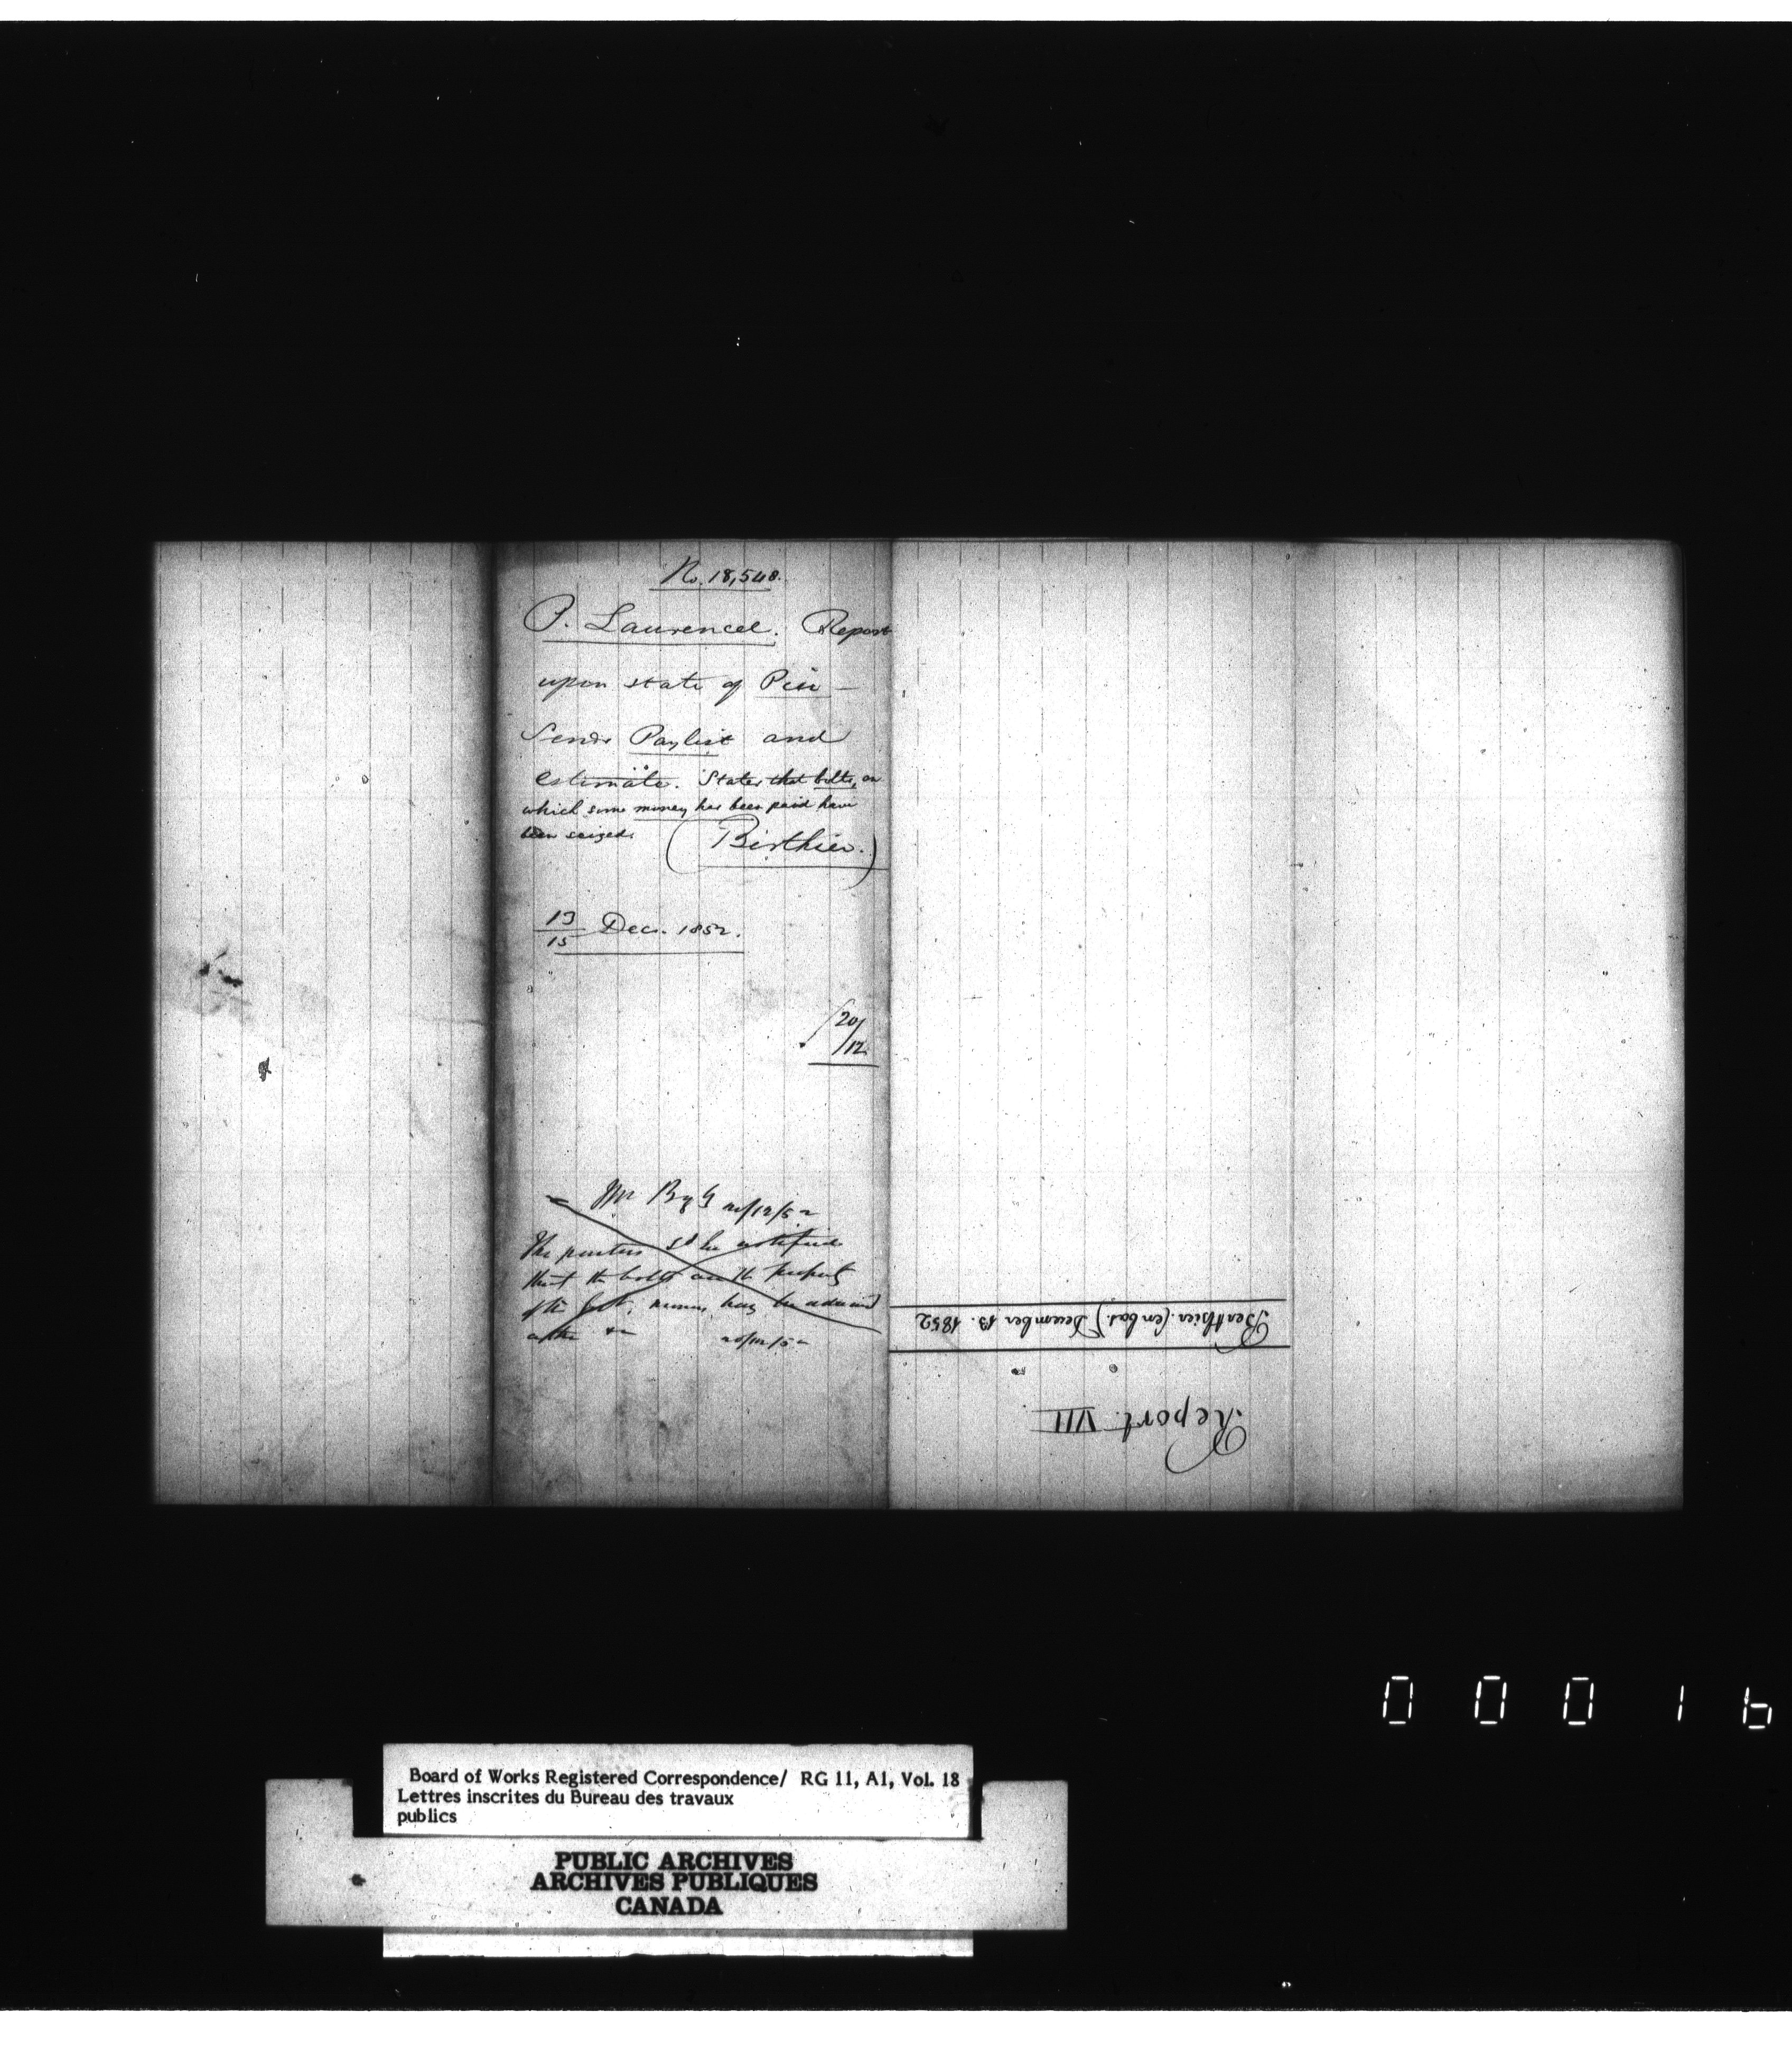 No. 18,548.
P. Laurencel. Report
upon state of Pier –
Sends Paylist and
estimate. States that bolts, on
which some money has been paid have
been seized.
(Berthier.)
13/15 Dec. 1852.
20/12
Mr
The parties sd be notified
that the bolts are the property
of the money havg be advanced
Berthier (en bas.) December 13. 1852
Report. VII
0 0 0 1 6
Board of Works Registered Correspondence/ RG 11, A1, Vol. 18
Lettres inscrites du Bureau des travaux
publics
PUBLIC ARCHIVES
ARCHIVES PUBLIQUES
CANADA